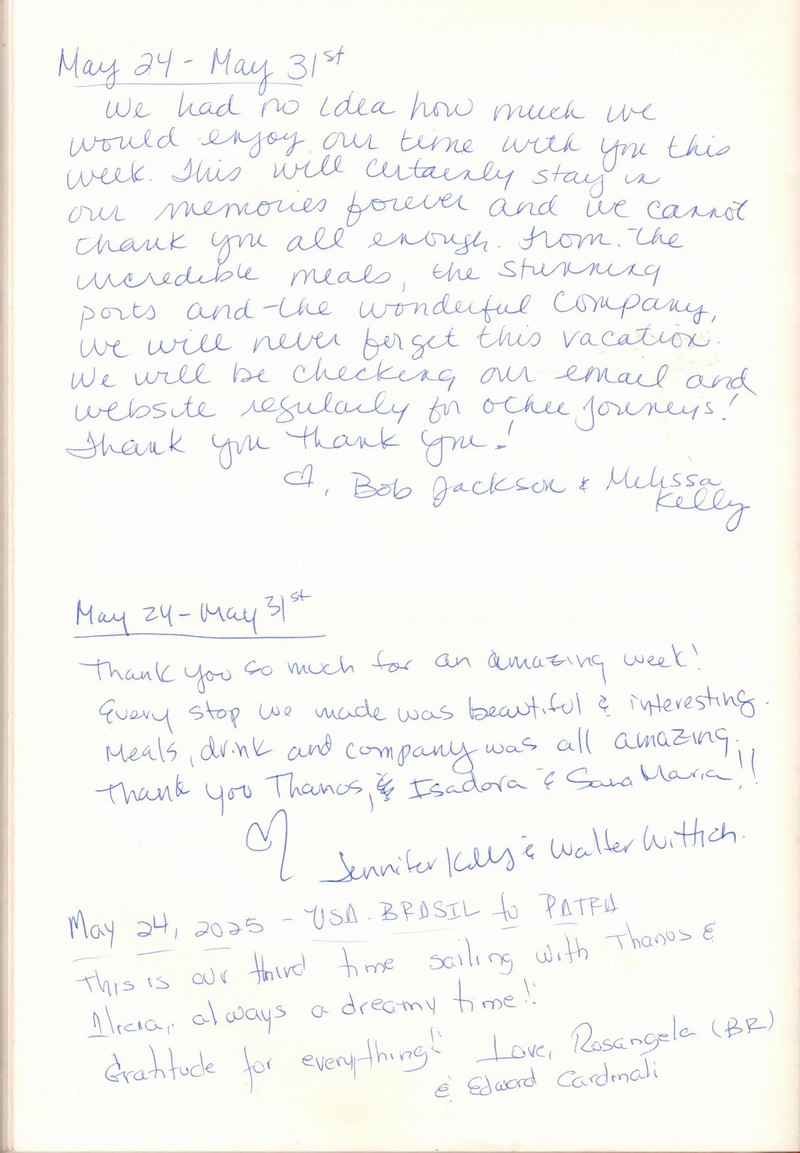 May 24 - May 31st
We had no idea how much we
would enjoy our time with you this
week. This will certainly stay in
our memories forever and we cannot
thank you all enough. From the
incredible meals, the stunning
ports and the wonderful company,
we will never forget this vacation.
We will be checking our email and
website regularly for other journeys!
Thank you thank you!
♡, Bob Jackson & Melissa
Kelly
May 24 - May 31st
Thank you so much for an amazing week!
Every stop we made was beautiful & interesting.
Meals, drink and company was all amazing.
Thank you Thanos, & Isadora & Sara Maria!!
♡ Jennifer Kelly & Walter Wittich.
May 24, 2025 - USA - BRASIL to PATRA
This is our third time sailing with Thanos &
always a dreamy time!!
Gratitude for everything! Love, Rosangela (BR)
& Edward